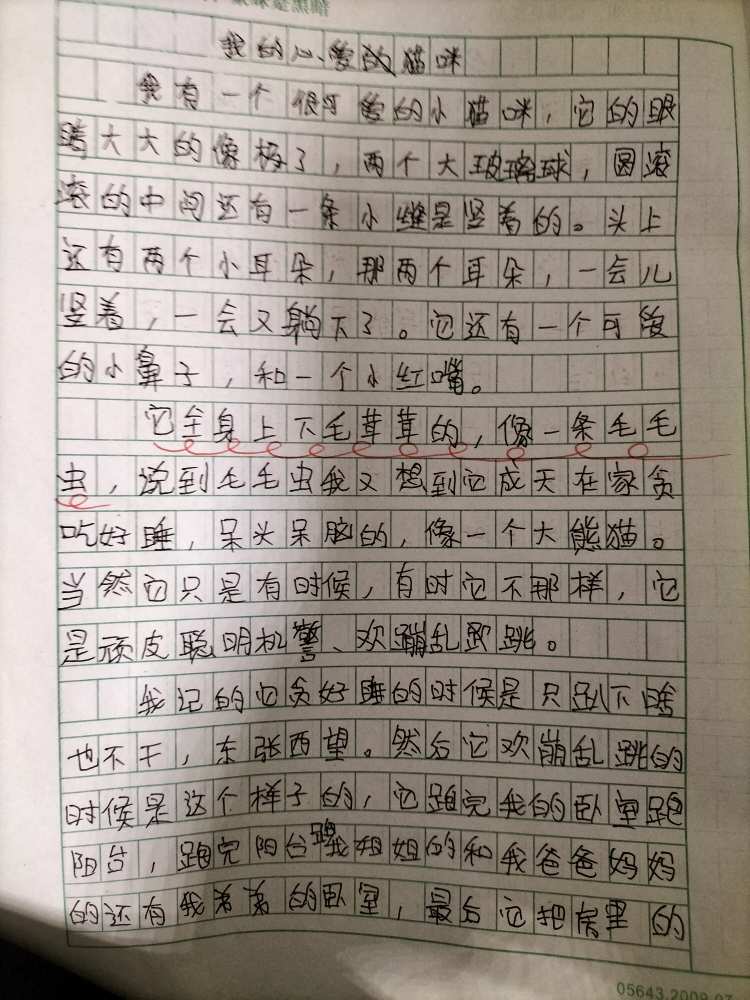 我的心爱的猫咪
我有一个很可爱的小猫咪，它的眼
睛大大的像极了，两个大玻璃球，圆滚
滚的中间还有一条小缝是竖着的。头上
还有两个小耳朵，那两个耳朵，一会儿
竖着，一会又躺下了。它还有一个可爱
的小鼻子，和一个小红嘴。
它全身上下毛茸茸的，像一条毛毛
虫，说到毛毛虫我又想到它成天在家贪
吃好睡，呆头呆脑的，像一个大熊猫。
当然它只是有时候，有时它不那样，它
是顽皮聪明机警、欢蹦乱跳。
我记的它贪好睡的时候是只趴下啥
也不干，东张西望。然后它欢崩乱跳的
时候是这个样子的，它跑完我的卧室跑
阳台，跑完阳台跑我姐姐的和我爸爸妈妈
的还有我弟弟的卧室，最后它把房里的
05643.2009.07